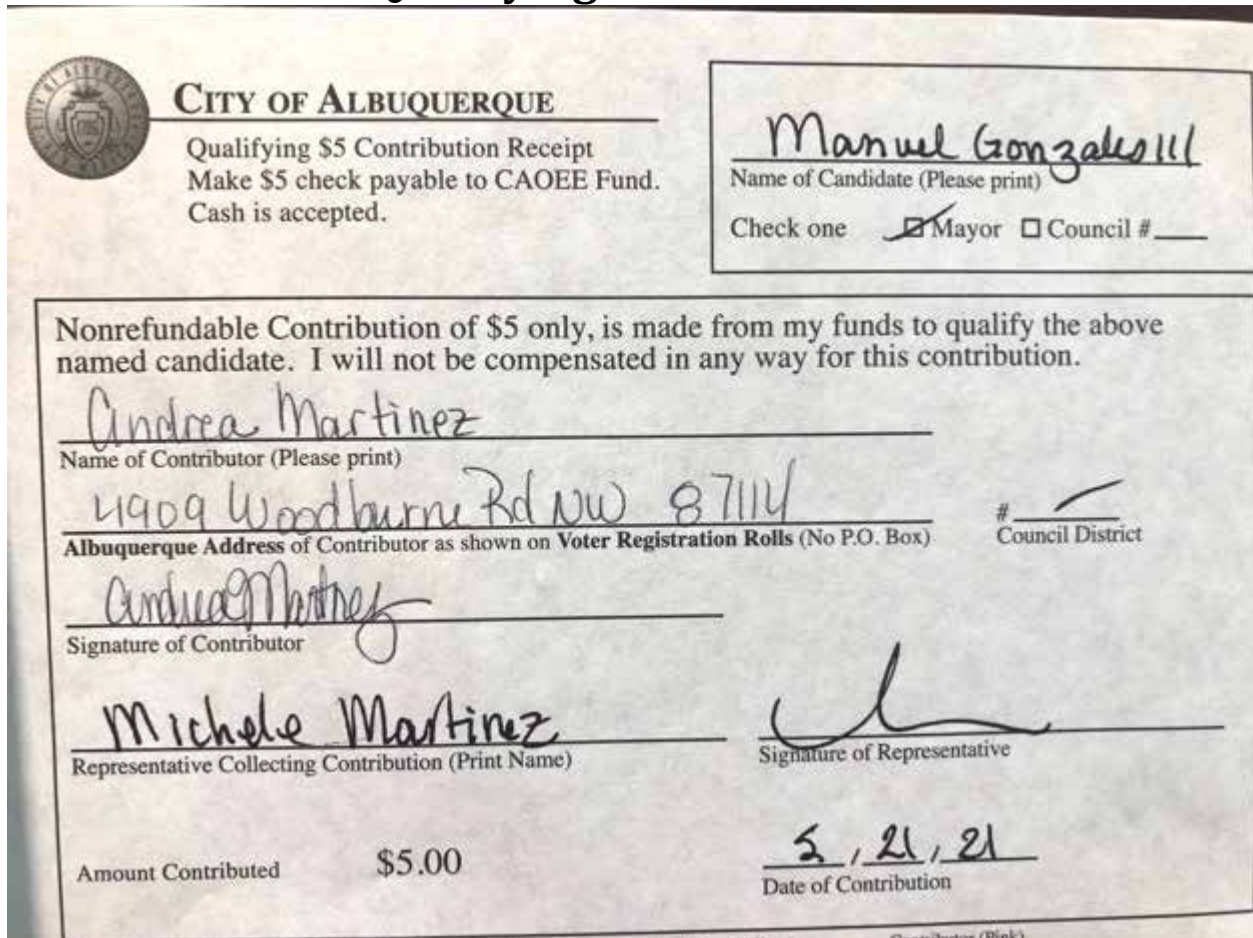 CITY OF ALBUQUERQUE
Qualifying $5 Contribution Receipt
Make $5 check payable to CAOEE Fund.
Cash is accepted.
Manuel Gonzales III
Name of Candidate (Please print)
Check one Mayor Council #
Nonrefundable Contribution of $5 only, is made from my funds to qualify the above
named candidate. I will not be compensated in any way for this contribution.
Andrea Martinez
Name of Contributor (Please print)
4909 Woodburne Rd NW 87114
Albuquerque Address of Contributor as shown on Voter Registration Rolls (No P.O. Box)
#
Council District
Andrea Martinez
Signature of Contributor
Michele Martinez
Representative Collecting Contribution (Print Name)
Signature of Representative
Amount Contributed $5.00
5, 21, 21
Date of Contribution